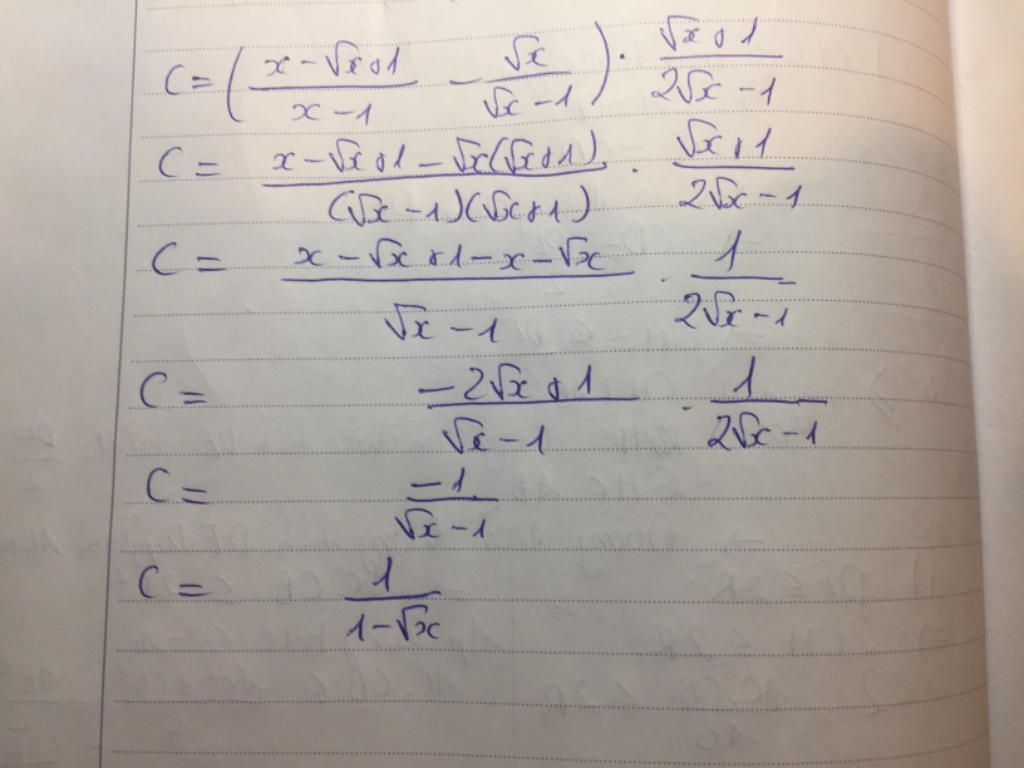 C = ( (x - √x + 1)/(x - 1) - √x/(√x - 1) ) · (√x + 1)/(2√x - 1)
C = (x - √x + 1 - √x(√x + 1))/((√x - 1)(√x + 1)) · (√x + 1)/(2√x - 1)
C = (x - √x + 1 - x - √x)/(√x - 1) · 1/(2√x - 1)
C = (-2√x + 1)/(√x - 1) · 1/(2√x - 1)
C = -1/(√x - 1)
C = 1/(1 - √x)